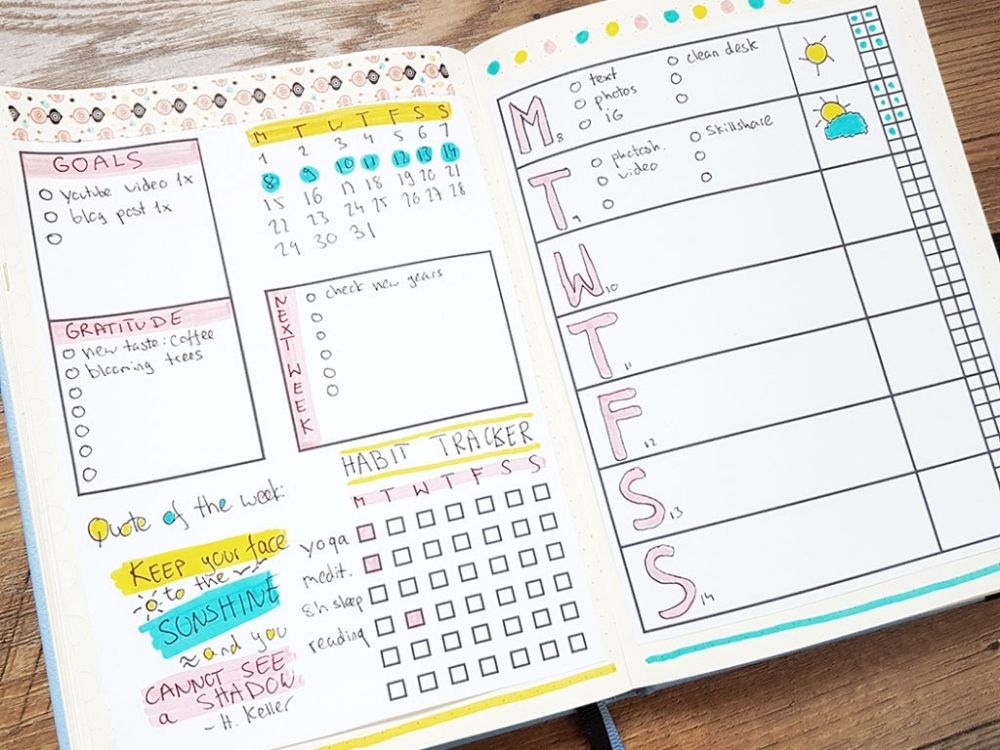 GOALS
youtube video 1x
blog post 1x
M T W T F S S
1 2 3 4 5 6 7
8 9 10 11 12 13 14
15 16 17 18 19 20 21
22 23 24 25 26 27 28
29 30 31
GRATITUDE
new taste: coffee
blooming trees
NEXT WEEK
check new gears
Quote of the week:
KEEP your face
to the
SUNSHINE
and you
CANNOT SEE
a SHADOW
- H. Keller
HABIT TRACKER
M T W T F S S
yoga
medit.
8h sleep
reading
M 8
text
photos
IG
clean desk
T 9
photosh.
video
Skillshare
W 10
T 11
F 12
S 13
S 14